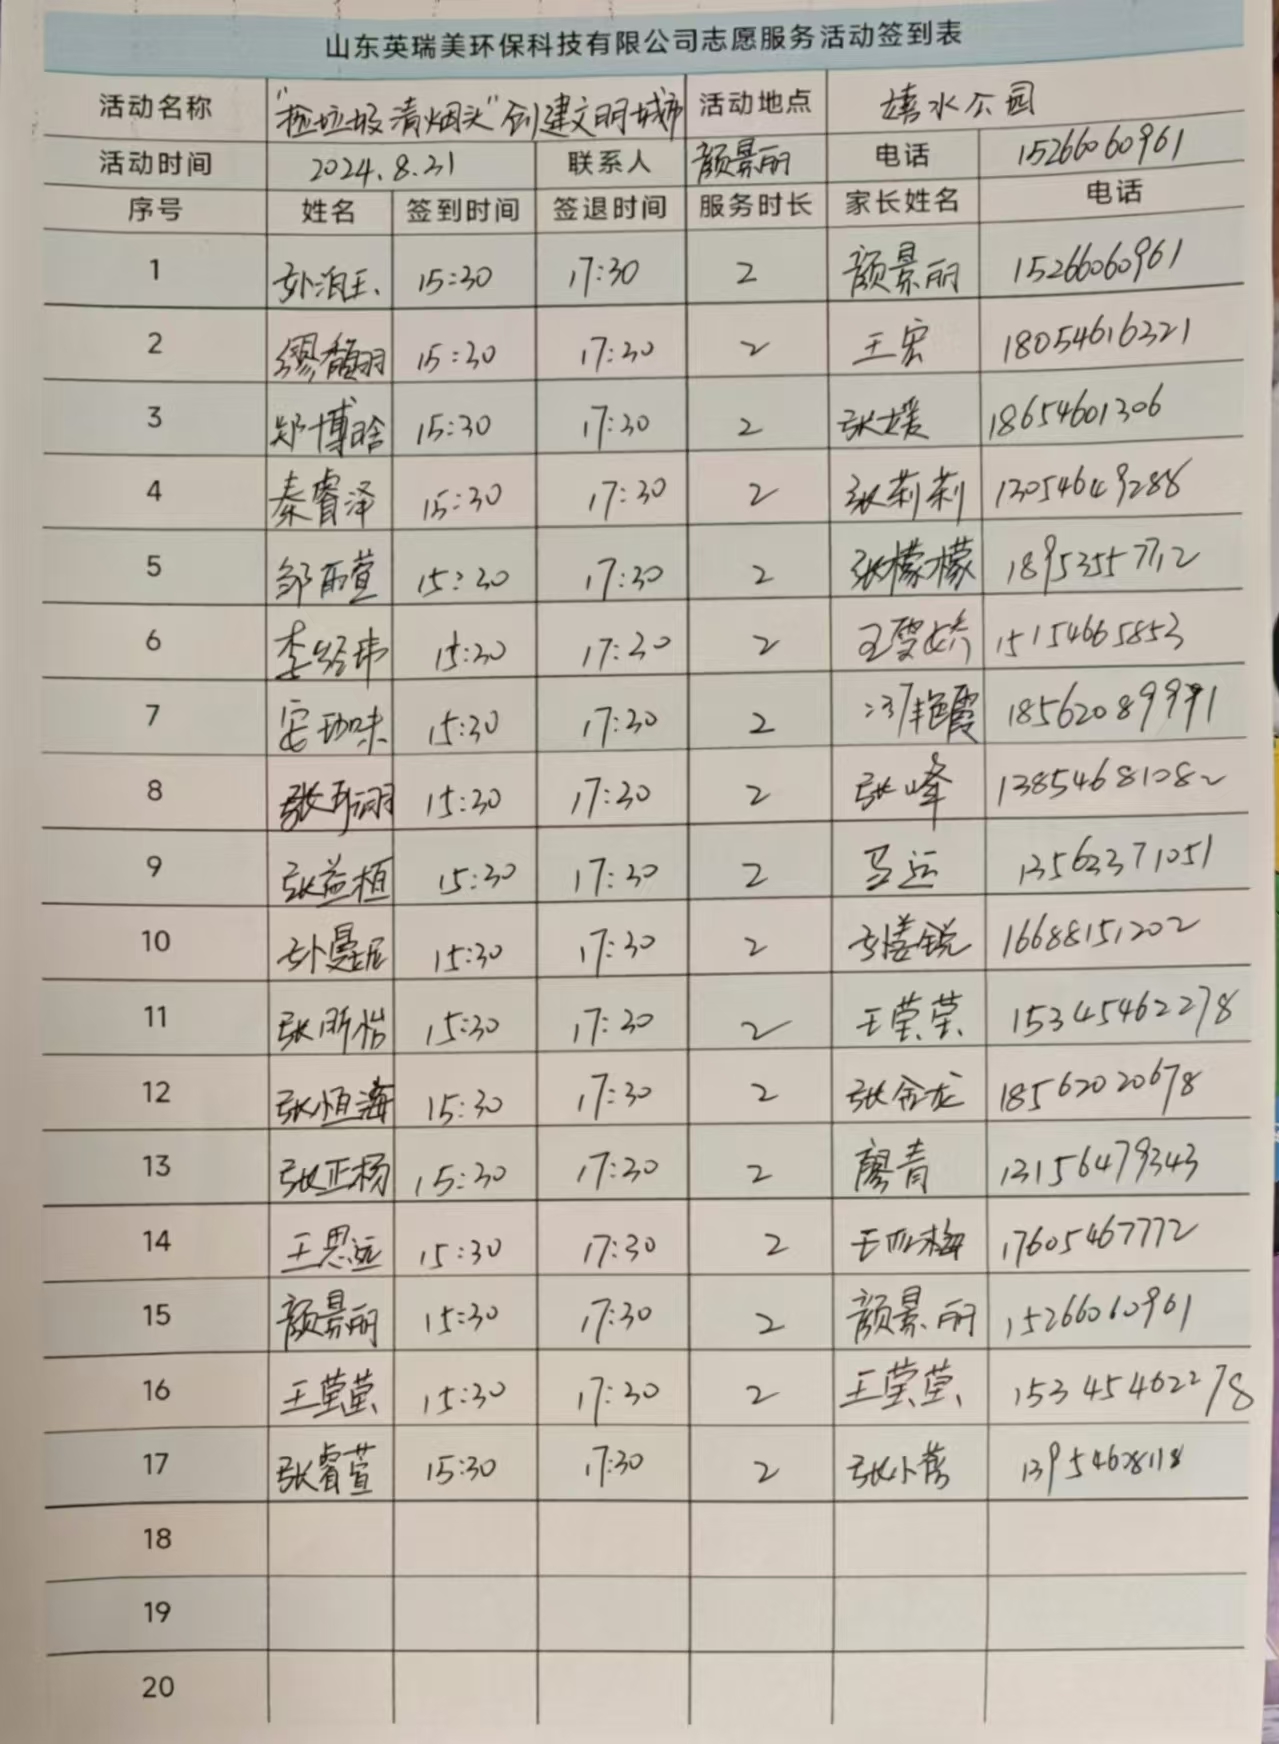 山东英瑞美环保科技有限公司志愿服务活动签到表
活动名称 "捡垃圾清烟头"创建文明城市 活动地点 嬉水公园
活动时间 2024.8.31 联系人 颜景丽 电话 15266060961
序号 姓名 签到时间 签退时间 服务时长 家长姓名 电话
1 15:30 17:30 2 颜景丽 15266060961
2 缪馥羽 15:30 17:30 2 王宏 18054616321
3 郑博晗 15:30 17:30 2 张媛 18654601306
4 秦睿泽 15:30 17:30 2 张莉莉 13054649288
5 邹雨萱 15:30 17:30 2 张檬檬 18953557712
6 李经玮 15:30 17:30 2 王雯娇 15154665853
7 安珈味 15:30 17:30 2 冯艳霞 18562089991
8 15:30 17:30 2 张峰 13854681082
9 张益植 15:30 17:30 2 马运 13562371051
10 孙曼妮 15:30 17:30 2 16688151202
11 张昕怡 15:30 17:30 2 王莹莹 15345462278
12 张恒海 15:30 17:30 2 张金龙 18562020678
13 张正杨 15:30 17:30 2 廖青 13156479343
14 王思远 15:30 17:30 2 17605467772
15 颜景丽 15:30 17:30 2 颜景丽 15266060961
16 王莹莹 15:30 17:30 2 王莹莹 15345462278
17 张睿萱 15:30 17:30 2 13954608118
18
19
20